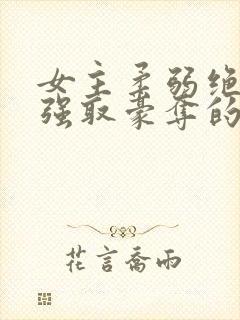 女主柔弱绝
强取豪夺的
花言喬雨